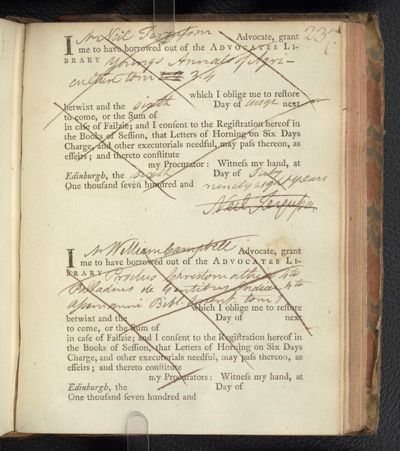 235
I Mr Neil Ferguson Advocate, grant
me to have borrowed out of the ADVOCATES LI-
BRARY Youngs Annals of Agri-
culture tom 34
which I oblige me to reſtore
betwixt and the sixth Day of next
to come, or the Sum of
in caſe of Failzie; and I conſent to the Regiſtration hereof in
the Books of Seſſion, that Letters of Horning on Six Days
Charge, and other executorials needful, may paſs thereon, as
effeirs; and thereto conſtitute
my Procurator: Witneſs my hand, at
Edinburgh, the sixth Day of July
One thouſand ſeven hundred and ninety eight years
Neil Ferguson
I Mr William Campbell Advocate, grant
me to have borrowed out of the ADVOCATES LI-
BRARY Proclus 4to
Palladius de Gentibus Indiae 4to
Bibl. tom
which I oblige me to reſtore
betwixt and the Day of next
to come, or the Sum of
in caſe of Failzie; and I conſent to the Regiſtration hereof in
the Books of Seſſion, that Letters of Horning on Six Days
Charge, and other executorials needful, may paſs thereon, as
effeirs; and thereto conſtitute
my Procurators: Witneſs my hand, at
Edinburgh, the Day of
One thouſand ſeven hundred and